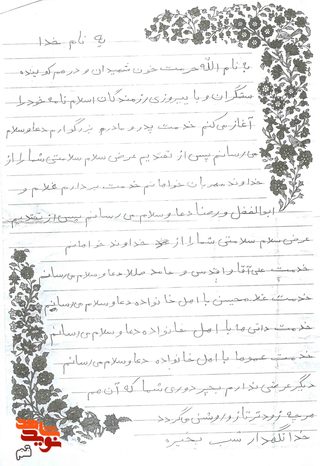 به نام خدا
به نام الله حرمت خون شهیدان و درهم کوبنده
ستگران و با پیروزی رزمندگان اسلام نامه خود را
آغاز می کنم خدمت پدر و مادرم بزرگوارم دعا و سلام
می رسانم پس از تقدیم عرض سلام سلامتی شما را از
خداوند مهربان خواهانم خدمت برادارم غلام و
ابوالفضل و رضا دعا و سلام می رسانم پس از تقدیم
عرض سلام سلامتی شما را از خداوند خواهانم
خدمت علی آقا و اقدس و حامد دعا و سلام می رسانم
خدمت غلامحسین با اهل خانواده دعا و سلام می رسانم
خدمت دائی ها با اهل خانواده دعا و سلام می رسانم
خدمت عموها با اهل خانواده دعا و سلام می رسانم
دیگر عرضی ندارم بجز دوری شما که آن هم
هر چه زودتر تازه و روشنی گردد
خدانگهدار شب بخیر
نوید شاهد
قم